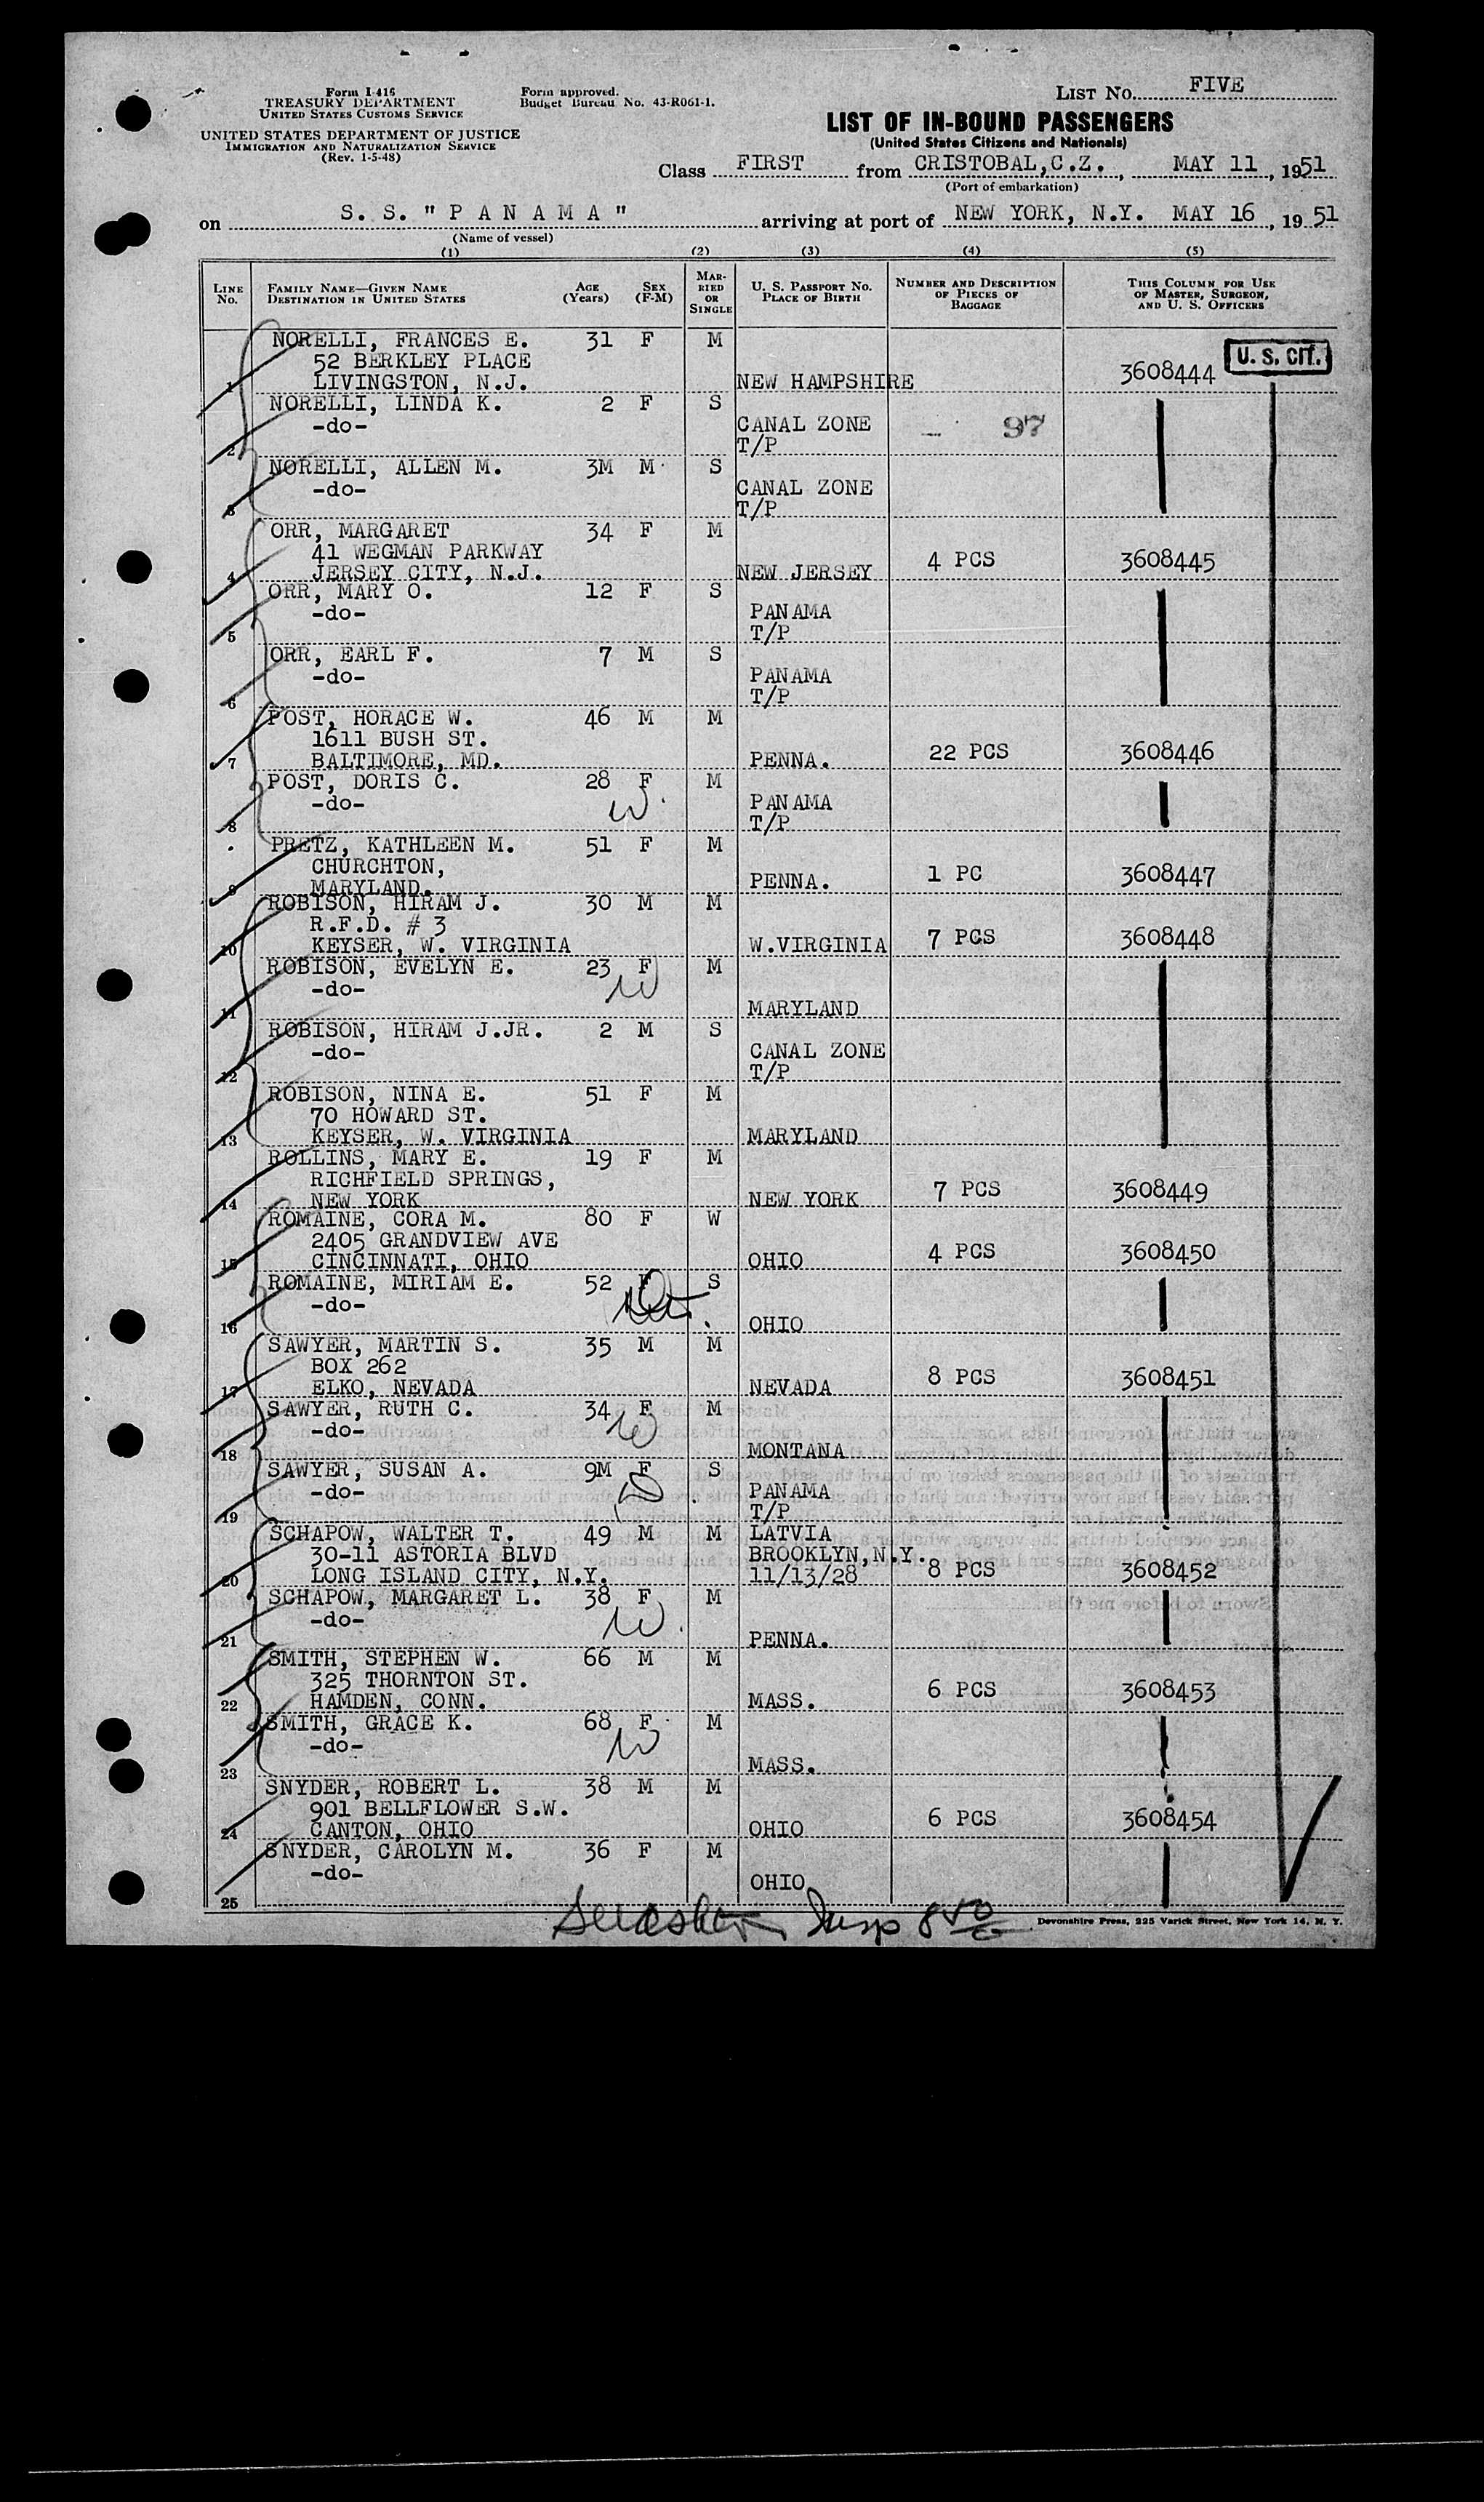 Form I-416
TREASURY DEPARTMENT
UNITED STATES CUSTOMS SERVICE
UNITED STATES DEPARTMENT OF JUSTICE
IMMIGRATION AND NATURALIZATION SERVICE
(Rev. 1-5-48)
Form approved.
Budget Bureau No. 43-R061-1.
LIST No. FIVE
LIST OF IN-BOUND PASSENGERS
(United States Citizens and Nationals)
Class FIRST from CRISTOBAL,C.Z., MAY 11, 1951
(Port of embarkation)
on S. S. " P A N A M A " arriving at port of NEW YORK, N.Y. MAY 16, 19 51
(Name of vessel)
(1) (2) (3) (4) (5)
LINE No. FAMILY NAME—GIVEN NAME DESTINATION IN UNITED STATES AGE (Years) SEX (F-M) MARRIED OR SINGLE U. S. PASSPORT No. PLACE OF BIRTH NUMBER AND DESCRIPTION OF PIECES OF BAGGAGE THIS COLUMN FOR USE OF MASTER, SURGEON, AND U. S. OFFICERS
NORELLI, FRANCES E. 31 F M
52 BERKLEY PLACE 3608444 U. S. CIT.
1 LIVINGSTON, N.J. NEW HAMPSHIRE
NORELLI, LINDA K. 2 F S
-do- CANAL ZONE 97
2 T/P
NORELLI, ALLEN M. 3M M S
-do- CANAL ZONE
3 T/P
ORR, MARGARET 34 F M
41 WEGMAN PARKWAY 4 PCS 3608445
4 JERSEY CITY, N.J. NEW JERSEY
ORR, MARY O. 12 F S
-do- PANAMA
5 T/P
ORR, EARL F. 7 M S
-do- PANAMA
6 T/P
POST, HORACE W. 46 M M
1611 BUSH ST.
7 BALTIMORE, MD. PENNA. 22 PCS 3608446
POST, DORIS C. 28 F M
-do- W. PANAMA
8 T/P
PRETZ, KATHLEEN M. 51 F M
CHURCHTON,
9 MARYLAND. PENNA. 1 PC 3608447
ROBISON, HIRAM J. 30 M M
R.F.D. # 3
10 KEYSER, W. VIRGINIA W.VIRGINIA 7 PCS 3608448
ROBISON, EVELYN E. 23 F M
-do- W
11 MARYLAND
ROBISON, HIRAM J.JR. 2 M S
-do- CANAL ZONE
12 T/P
ROBISON, NINA E. 51 F M
70 HOWARD ST.
13 KEYSER, W. VIRGINIA MARYLAND
ROLLINS, MARY E. 19 F M
RICHFIELD SPRINGS,
14 NEW YORK NEW YORK 7 PCS 3608449
ROMAINE, CORA M. 80 F W
2405 GRANDVIEW AVE
15 CINCINNATI, OHIO OHIO 4 PCS 3608450
ROMAINE, MIRIAM E. 52 F S
-do-
16 OHIO
SAWYER, MARTIN S. 35 M M
BOX 262
17 ELKO, NEVADA NEVADA 8 PCS 3608451
SAWYER, RUTH C. 34 F M
-do- W
18 MONTANA
SAWYER, SUSAN A. 9M F S
-do- D PANAMA
19 T/P
SCHAPOW, WALTER T. 49 M M LATVIA
30-11 ASTORIA BLVD BROOKLYN,N.Y.
20 LONG ISLAND CITY, N.Y. 11/13/28 8 PCS 3608452
SCHAPOW, MARGARET L. 38 F M
-do- W.
21 PENNA.
SMITH, STEPHEN W. 66 M M
325 THORNTON ST.
22 HAMDEN, CONN. MASS. 6 PCS 3608453
SMITH, GRACE K. 68 F M
-do- W
23 MASS.
SNYDER, ROBERT L. 38 M M
901 BELLFLOWER S.W.
24 CANTON, OHIO OHIO 6 PCS 3608454
SNYDER, CAROLYN M. 36 F M
-do- OHIO
25
Insp
Devonshire Press, 225 Varick Street, New York 14, N. Y.